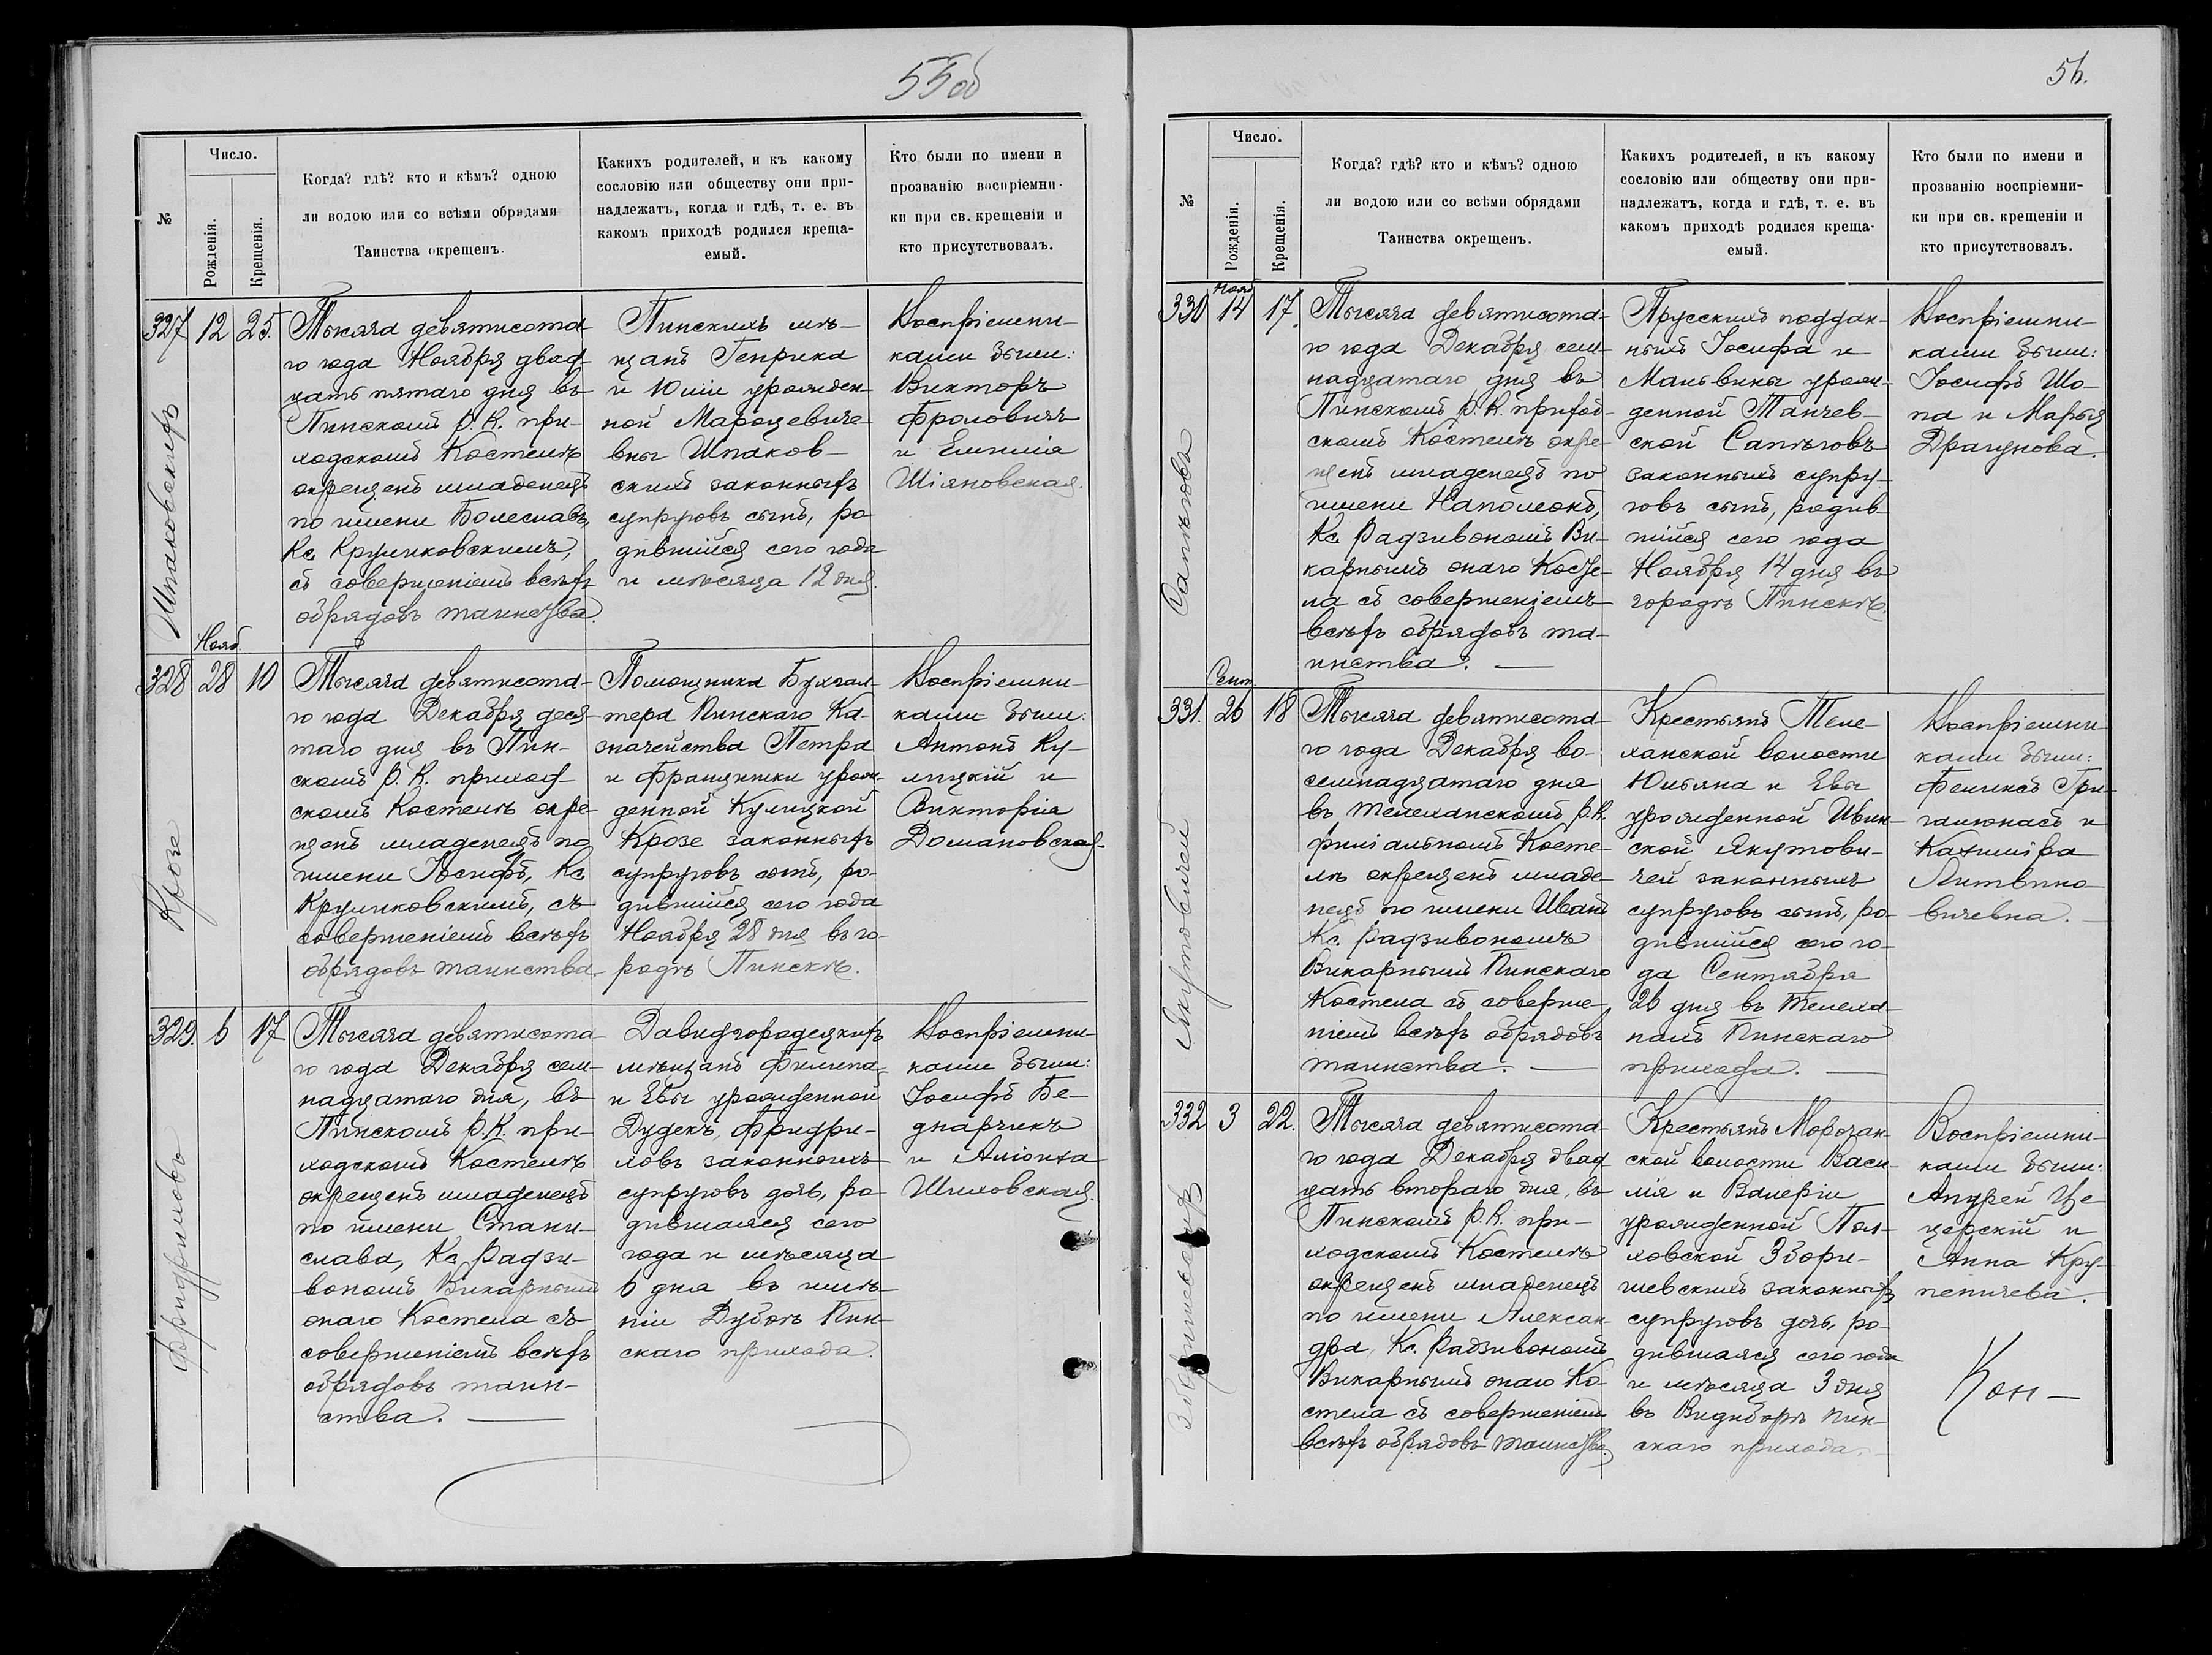 55об
№
Число.
Рожденія.
Крещенія.
Когда? гдѣ? кто и кѣмъ? одною
ли водою или со всѣми обрядами
Таинства окрещенъ.
Какихъ родителей, и къ какому
сословію или обществу они при-
надлежатъ, когда и гдѣ, т. е. въ
какомъ приходѣ родился креща-
емый.
Кто были по имени и
прозванію воспріемни-
ки при св. крещеніи и
кто присутствовалъ.
327 12 25.
Шпаковскихъ
Тысяча девятисота-
го года Ноября двад-
цать пятаго дня въ
Пинскомъ Р. К. при-
ходскомъ Костелѣ
окрещенъ младенецъ
по имени Болеславъ,
Кс. Круликовскимъ,
съ совершеніемъ всѣхъ
обрядовъ таинства.
Пинскихъ мѣ-
щанъ Генрика
и Юліи урожден-
ной Мароцевиче-
вны Шпаков-
скихъ законныхъ
супруговъ сынъ, ро-
дившійся сего года
и мѣсяца 12 дня.
Воспріемни-
ками были:
Викторъ
Фроловичъ
и Емилія
Шіяновская.
Нояб.
328 28 10
Крозе
Тысяча девятисота-
го года Декабря деся-
таго дня въ Пин-
скомъ Р. К. приход-
скомъ Костелѣ окре-
щенъ младенецъ по
имени Іосифъ, Кс.
Круликовскимъ, съ
совершеніемъ всѣхъ
обрядовъ таинства.
Помощника Бухгал-
тера Пинскаго Ка-
значейства Петра
и Францишки урож-
денной Кулицкой
Крозе законныхъ
супруговъ сынъ, ро-
дившійся сего года
Ноября 28 дня въ го-
родѣ Пинскѣ.
Воспріемни-
ками были:
Антонъ Ку-
лицкій и
Викторія
Домановская.
329. 6 17
Фридриховъ
Тысяча девятисота-
го года Декабря сем-
надцатаго дня, въ
Пинскомъ Р. К. при-
ходскомъ Костелѣ
окрещенъ младенецъ
по имени Стани-
слава, Кс. Радзи-
вономъ Викарнымъ
онаго Костела съ
совершеніемъ всѣхъ
обрядовъ таин-
ства.
Давидгородецкихъ
мѣщанъ Филипа
и Евы урожденной
Дудекъ, Фридри-
ховъ законныхъ
супруговъ дочь, ро-
дившаяся сего
года и мѣсяца
6 дня въ имѣ-
ніи Дубой Пин-
скаго прихода.
Воспріемни-
ками были:
Іосифъ Бе-
днарчикъ
и Алѳонза
Шиховская.
56.
№
Число.
Рожденія.
Крещенія.
Когда? гдѣ? кто и кѣмъ? одною
ли водою или со всѣми обрядами
Таинства окрещенъ.
Какихъ родителей, и къ какому
сословію или обществу они при-
надлежатъ, когда и гдѣ, т. е. въ
какомъ приходѣ родился креща-
емый.
Кто были по имени и
прозванію воспріемни-
ки при св. крещеніи и
кто присутствовалъ.
Нояб.
330 14 17.
Сапѣговъ
Тысяча девятисота-
го года Декабря сем-
надцатаго дня въ
Пинскомъ Р. К. приход-
скомъ Костелѣ окре-
щенъ младенецъ по
имени Наполеонъ,
Кс. Радзивономъ Ви-
карнымъ онаго Косте-
ла съ совершеніемъ
всѣхъ обрядовъ та-
инства.
Прусскихъ поддан-
ныхъ Іосифа и
Мальвины урож-
денной Танчев-
ской Сапѣговъ
законныхъ супру-
говъ сынъ, родив-
шійся сего года
Ноября 14 дня въ
городѣ Пинскѣ.
Воспріемни-
ками были:
Іосифъ Шо-
па и Марья
Драгунова.
Сент.
331. 26 18
Якутовичей
Тысяча девятисота-
го года Декабря во-
семнадцатаго дня
въ Телеханскомъ Р. К.
филіальномъ Косте-
лѣ окрещенъ младе-
нецъ по имени Иванъ
Кс. Радзивономъ
Викарнымъ Пинскаго
Костела съ соверше-
ніемъ всѣхъ обрядовъ
таинства.
Крестьянъ Теле-
ханской волости
Юльяна и Евы
урожденной Ивин-
ской Якутови-
чей законныхъ
супруговъ сынъ, ро-
дившійся сего го-
да Сентября
26 дня въ Телеха-
нахъ Пинскаго
прихода.
Воспріемни-
ками были:
Феликсъ Гри-
галюнасъ и
Казиміра
Литвино-
вичевна.
332 3 22.
Тысяча девятисота-
го года Декабря двад-
цать втораго дня, въ
Пинскомъ Р. К. при-
ходскомъ Костелѣ
окрещенъ младенецъ
по имени Алексан-
дра, Кс. Радзивономъ
Викарнымъ онаго Ко-
стела съ совершеніемъ
всѣхъ обрядовъ таинства.
Крестьянъ Морочан-
ской волости Васи-
лія и Валеріи
урожденной Пол-
ховской Збори-
шевскихъ законныхъ
супруговъ дочь, ро-
дившаяся сего года
и мѣсяца 3 дня
въ Видиборѣ Пин-
скаго прихода.
Воспріемни-
ками были:
Андрей Це-
церскій и
Анна Кру-
пеничева.
Кон-